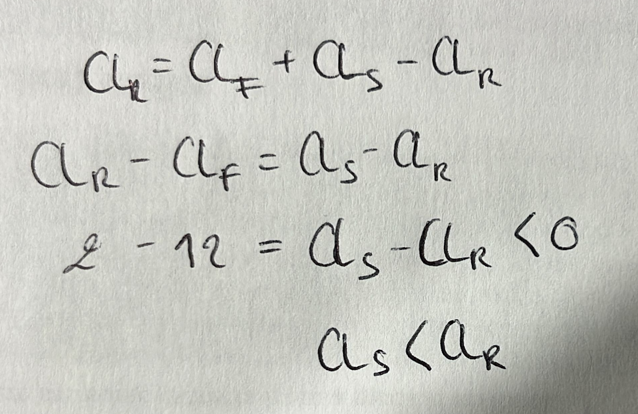 a_R = a_F + a_S - a_R
a_R - a_F = a_S - a_R
2 - 12 = a_S - a_R < 0
a_S < a_R